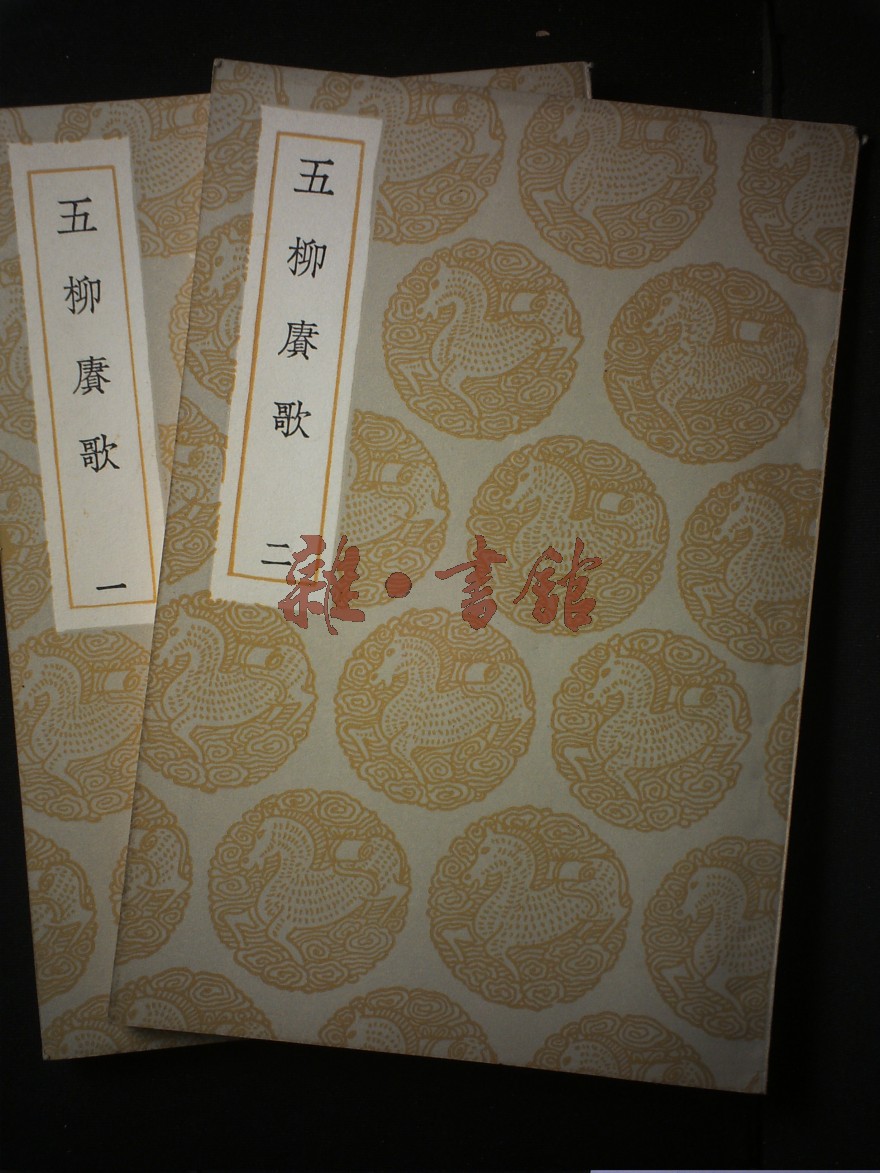 五柳賡歌 一
五柳賡歌 二
雜·書館